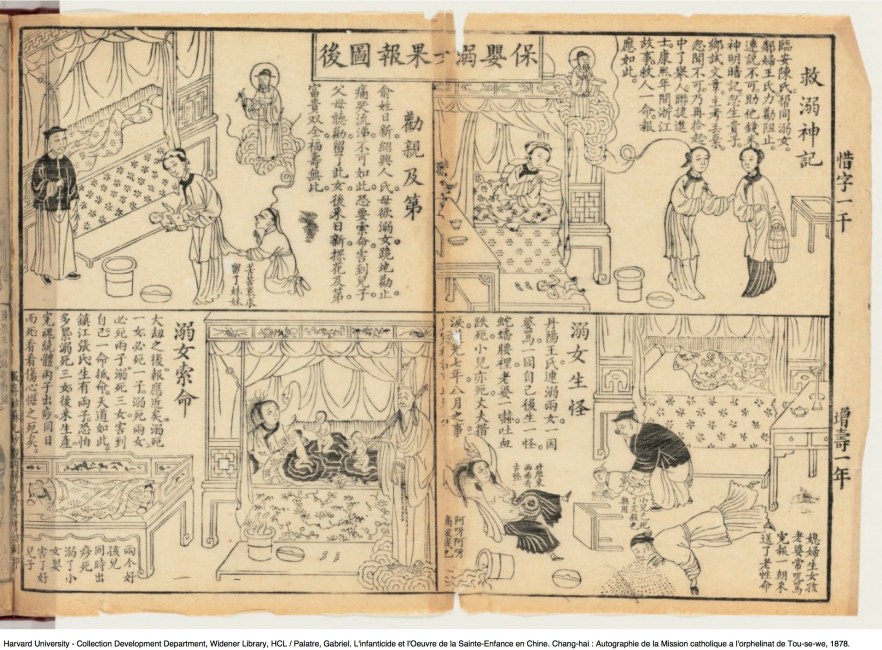 保嬰溺女果報圖後
惜字一千
增壽一年
救溺神記
臨安陳氏幇同溺女。
鄰婦王氏力勸阻止。
連說不可助他錢米
神明暗記忽生貴子。
鄉試文章主考丟棄
忽聞不可乃再拾起
中了舉人聯捷進
士康熙年間浙江
故事救人一命報
應如此。
勸親及第
俞姓日新紹興人氏母欲溺女跪地勸止
痛哭流涕不可如此恐要索命害到兒子
父母聽勸留了此女後來日新探花及第
富貴双全福壽無比
苦苦哀求
留了妹妹
溺女生怪
丹陽王氏連溺兩女一因
婆罵一因自己後生一怪
蛇蟠腰裡老婆一嚇吐血
跌死小兒亦死丈夫揩
淚 七年八月之事
媳婦生女孩
老婆常咒罵
冤報一朝來
送了老性命
小兒已死
阿呀阿呀
溺女索命
大劫之後報應近矣溺死
一女必死一子溺死兩女
必死兩子溺死三女害到
自己一命抵命天道如此
鎮江張氏生有兩子恐怕
多累溺死三女後來生產
冤魂繞體兩子出痧同日
而死看看傷心悔之死矣
兩个好
孩兒
同時出
痧死
溺了小
女
害了好
兒子
Harvard University - Collection Development Department, Widener Library, HCL / Palatre, Gabriel. L'infanticide et l'Oeuvre de la Sainte-Enfance en Chine. Chang-hai : Autographie de la Mission catholique a l'orphelinat de Tou-se-we, 1878.